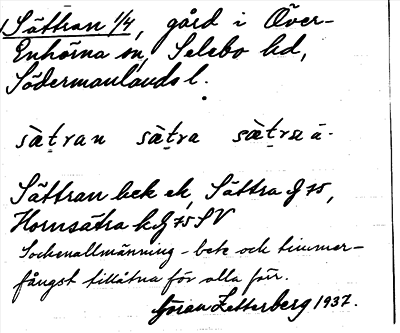 Sättran 1/4, gård i Över-
Enhörna sn, Selebo hd,
Södermanlands l.
sæ̀t̯ran sæ̀t̯ra sæ̀t̯ra
Sättran bek ek, Sättra G 75,
Hornsätra kG 75 SV
Sockenallmänning – bete och timmer-
fångst tillåtna för alla förr.
Göran Zetterberg 1937.